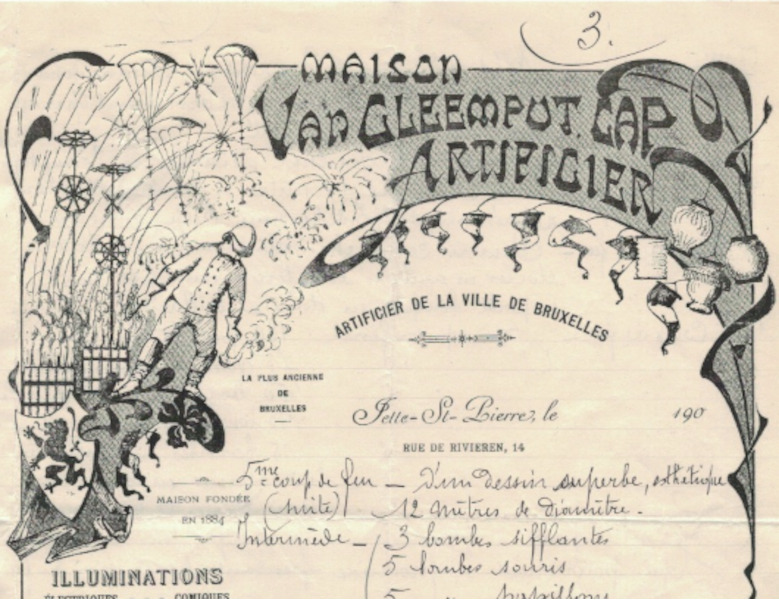 3.
MAISON
VAN CLEEMPUT. CAP
ARTIFICIER
ARTIFICIER DE LA VILLE DE BRUXELLES
LA PLUS ANCIENNE
DE
BRUXELLES
Jette-St-Pierre, le 190
RUE DE RIVIEREN, 14
MAISON FONDÉE
EN 1884
5me coup de feu – D'un dessin superbe, esthétique
(suite) 12 mètres de diamètre.
Intermède – 3 bombes sifflantes
5 bombes souris
5 papillons
ILLUMINATIONS
ÉLECTRIQUES COMIQUES